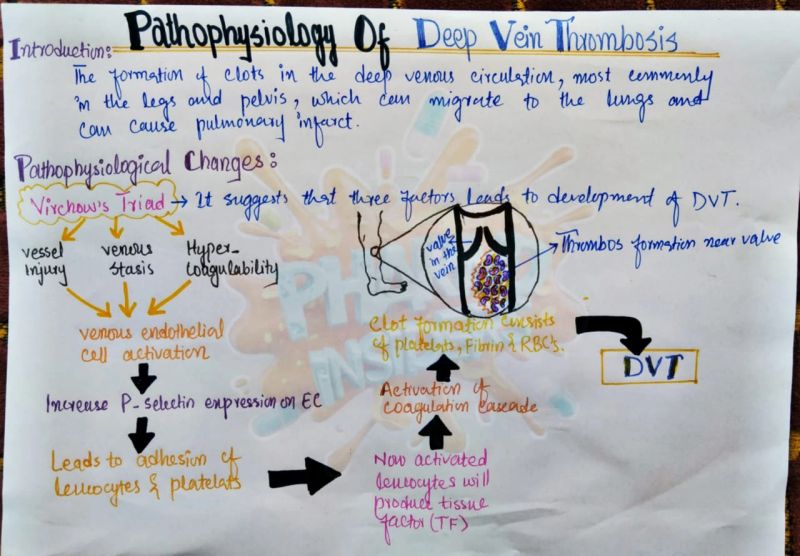 Pathophysiology Of Deep Vein Thrombosis
Introduction:
The formation of clots in the deep venous circulation, most commonly
in the legs and pelvis, which can migrate to the lungs and
can cause pulmonary infarct.
Pathophysiological Changes:
Virchow's Triad → It suggests that three factors leads to development of DVT.
vessel
injury
venous
stasis
Hyper-
coagulability
valve
in the
vein
Thrombos formation near valve
venous endothelial
cell activation
Increase P-selectin expression on EC
Leads to adhesion of
leucocytes & platelats
Now activated
leucocytes will
produce tissue
factor (TF)
Activation of
coagulation cascade
Clot formation consists
of platelats, Fibrin & RBC's.
DVT
PHARMA
INSIGHT